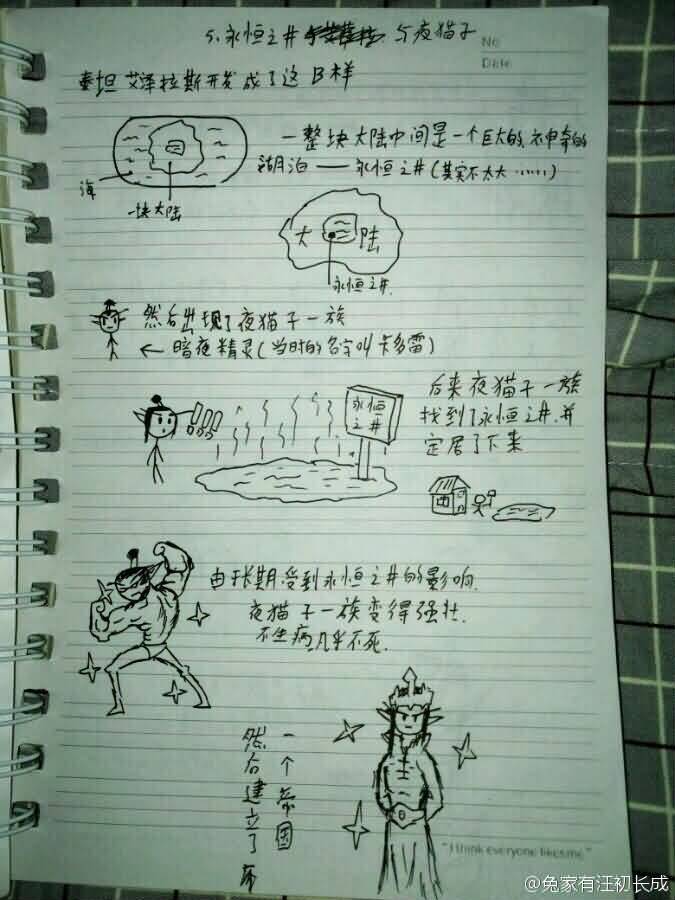 5、永恒之井 与夜猫子
No
Date
泰坦 艾泽拉斯开发成了这B样
一整块大陆中间是一个巨大的、神奇的
湖泊——永恒之井(其实不太大……)
海
一块大陆
大陆
永恒之井.
然后出现了夜猫子一族
←暗夜精灵(当时的名字叫卡多雷)
后来夜猫子一族
找到了永恒之井.并
定居了下来
!!!
永恒
之井
由于长期受到永恒之井的影响.
夜猫子一族变得强壮.
不生病几乎不死.
然后建立了
一个帝国
"I think everyone likes me"
@兔家有汪初长成